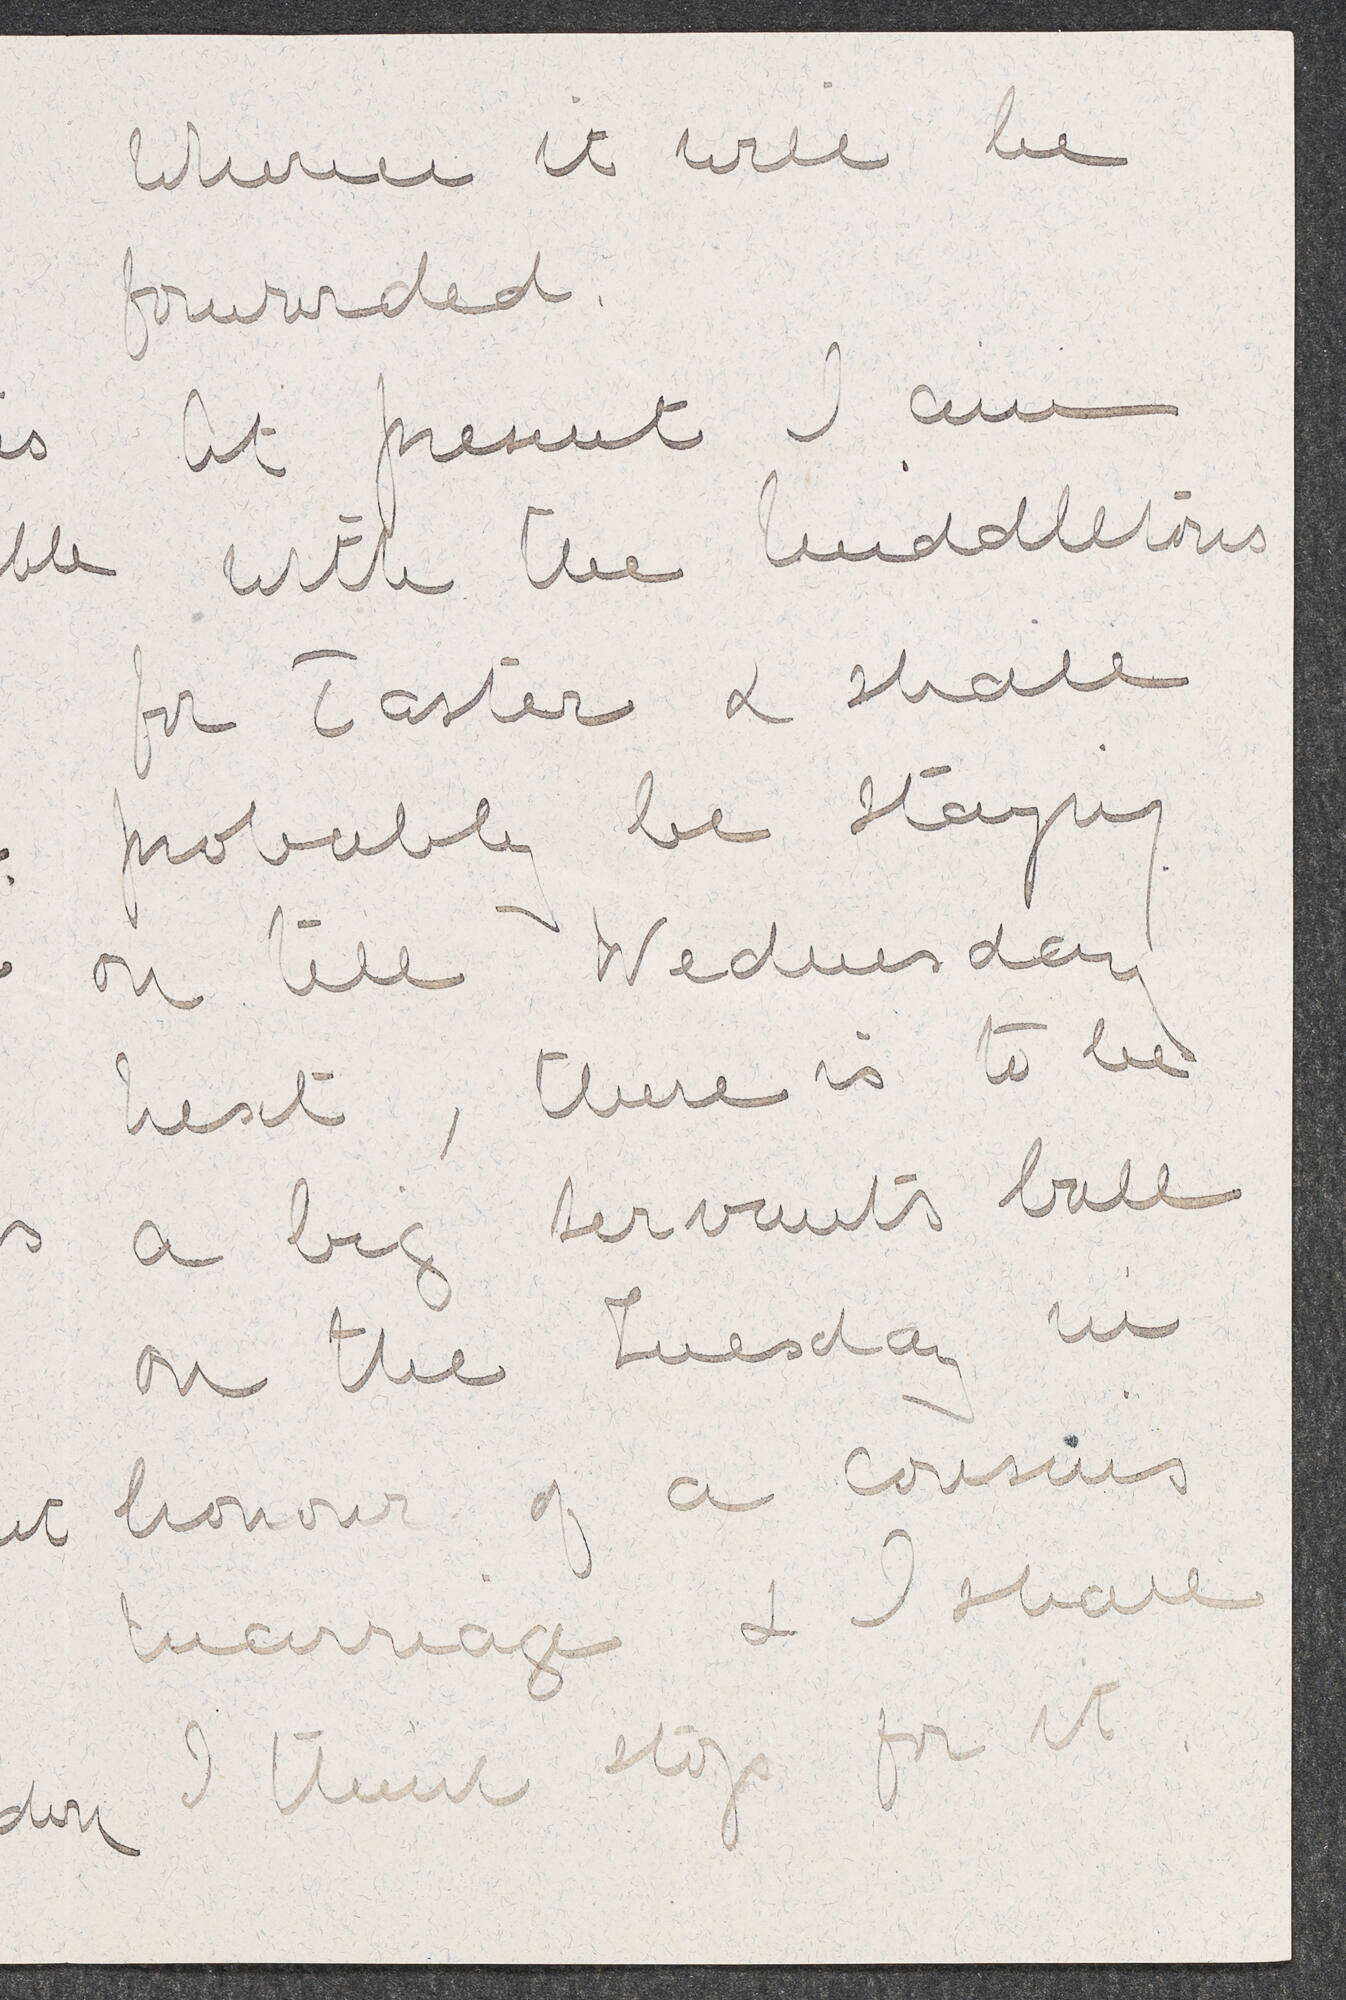 whence it will be
forwarded.
At present I am
with the Middletons
for Easter & shall
probably be staying
on till Wednesday
next, there is to be
a big servants ball
on the Tuesday in
honour of a cousins
marriage & I shall
I think stop for it.